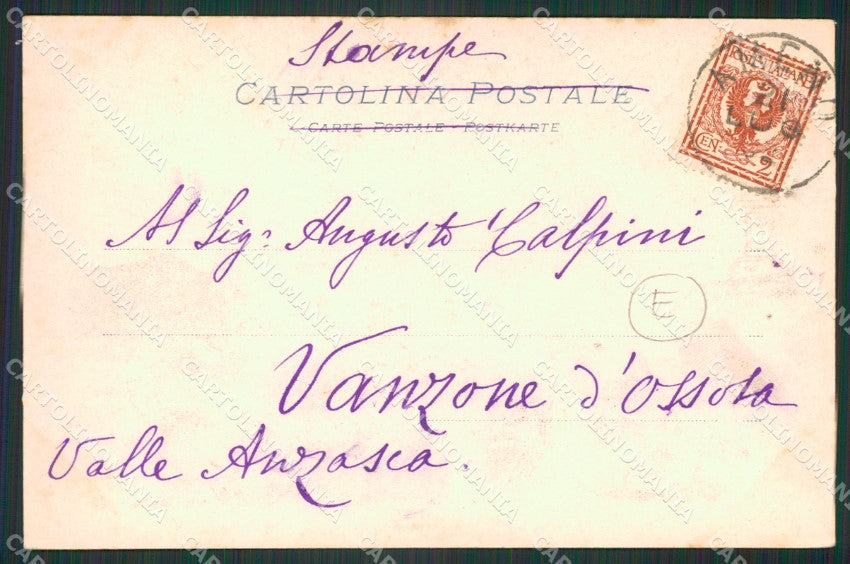 Stampe
CARTOLINA POSTALE
CARTE POSTALE - POSTKARTE
Al Sig.r Augusto Calpini
E
Vanzone d'Ossola
Valle Anzasca.
POSTE ITALIANE
21
LUG
CEN. 2
CARTOLINOMANIA